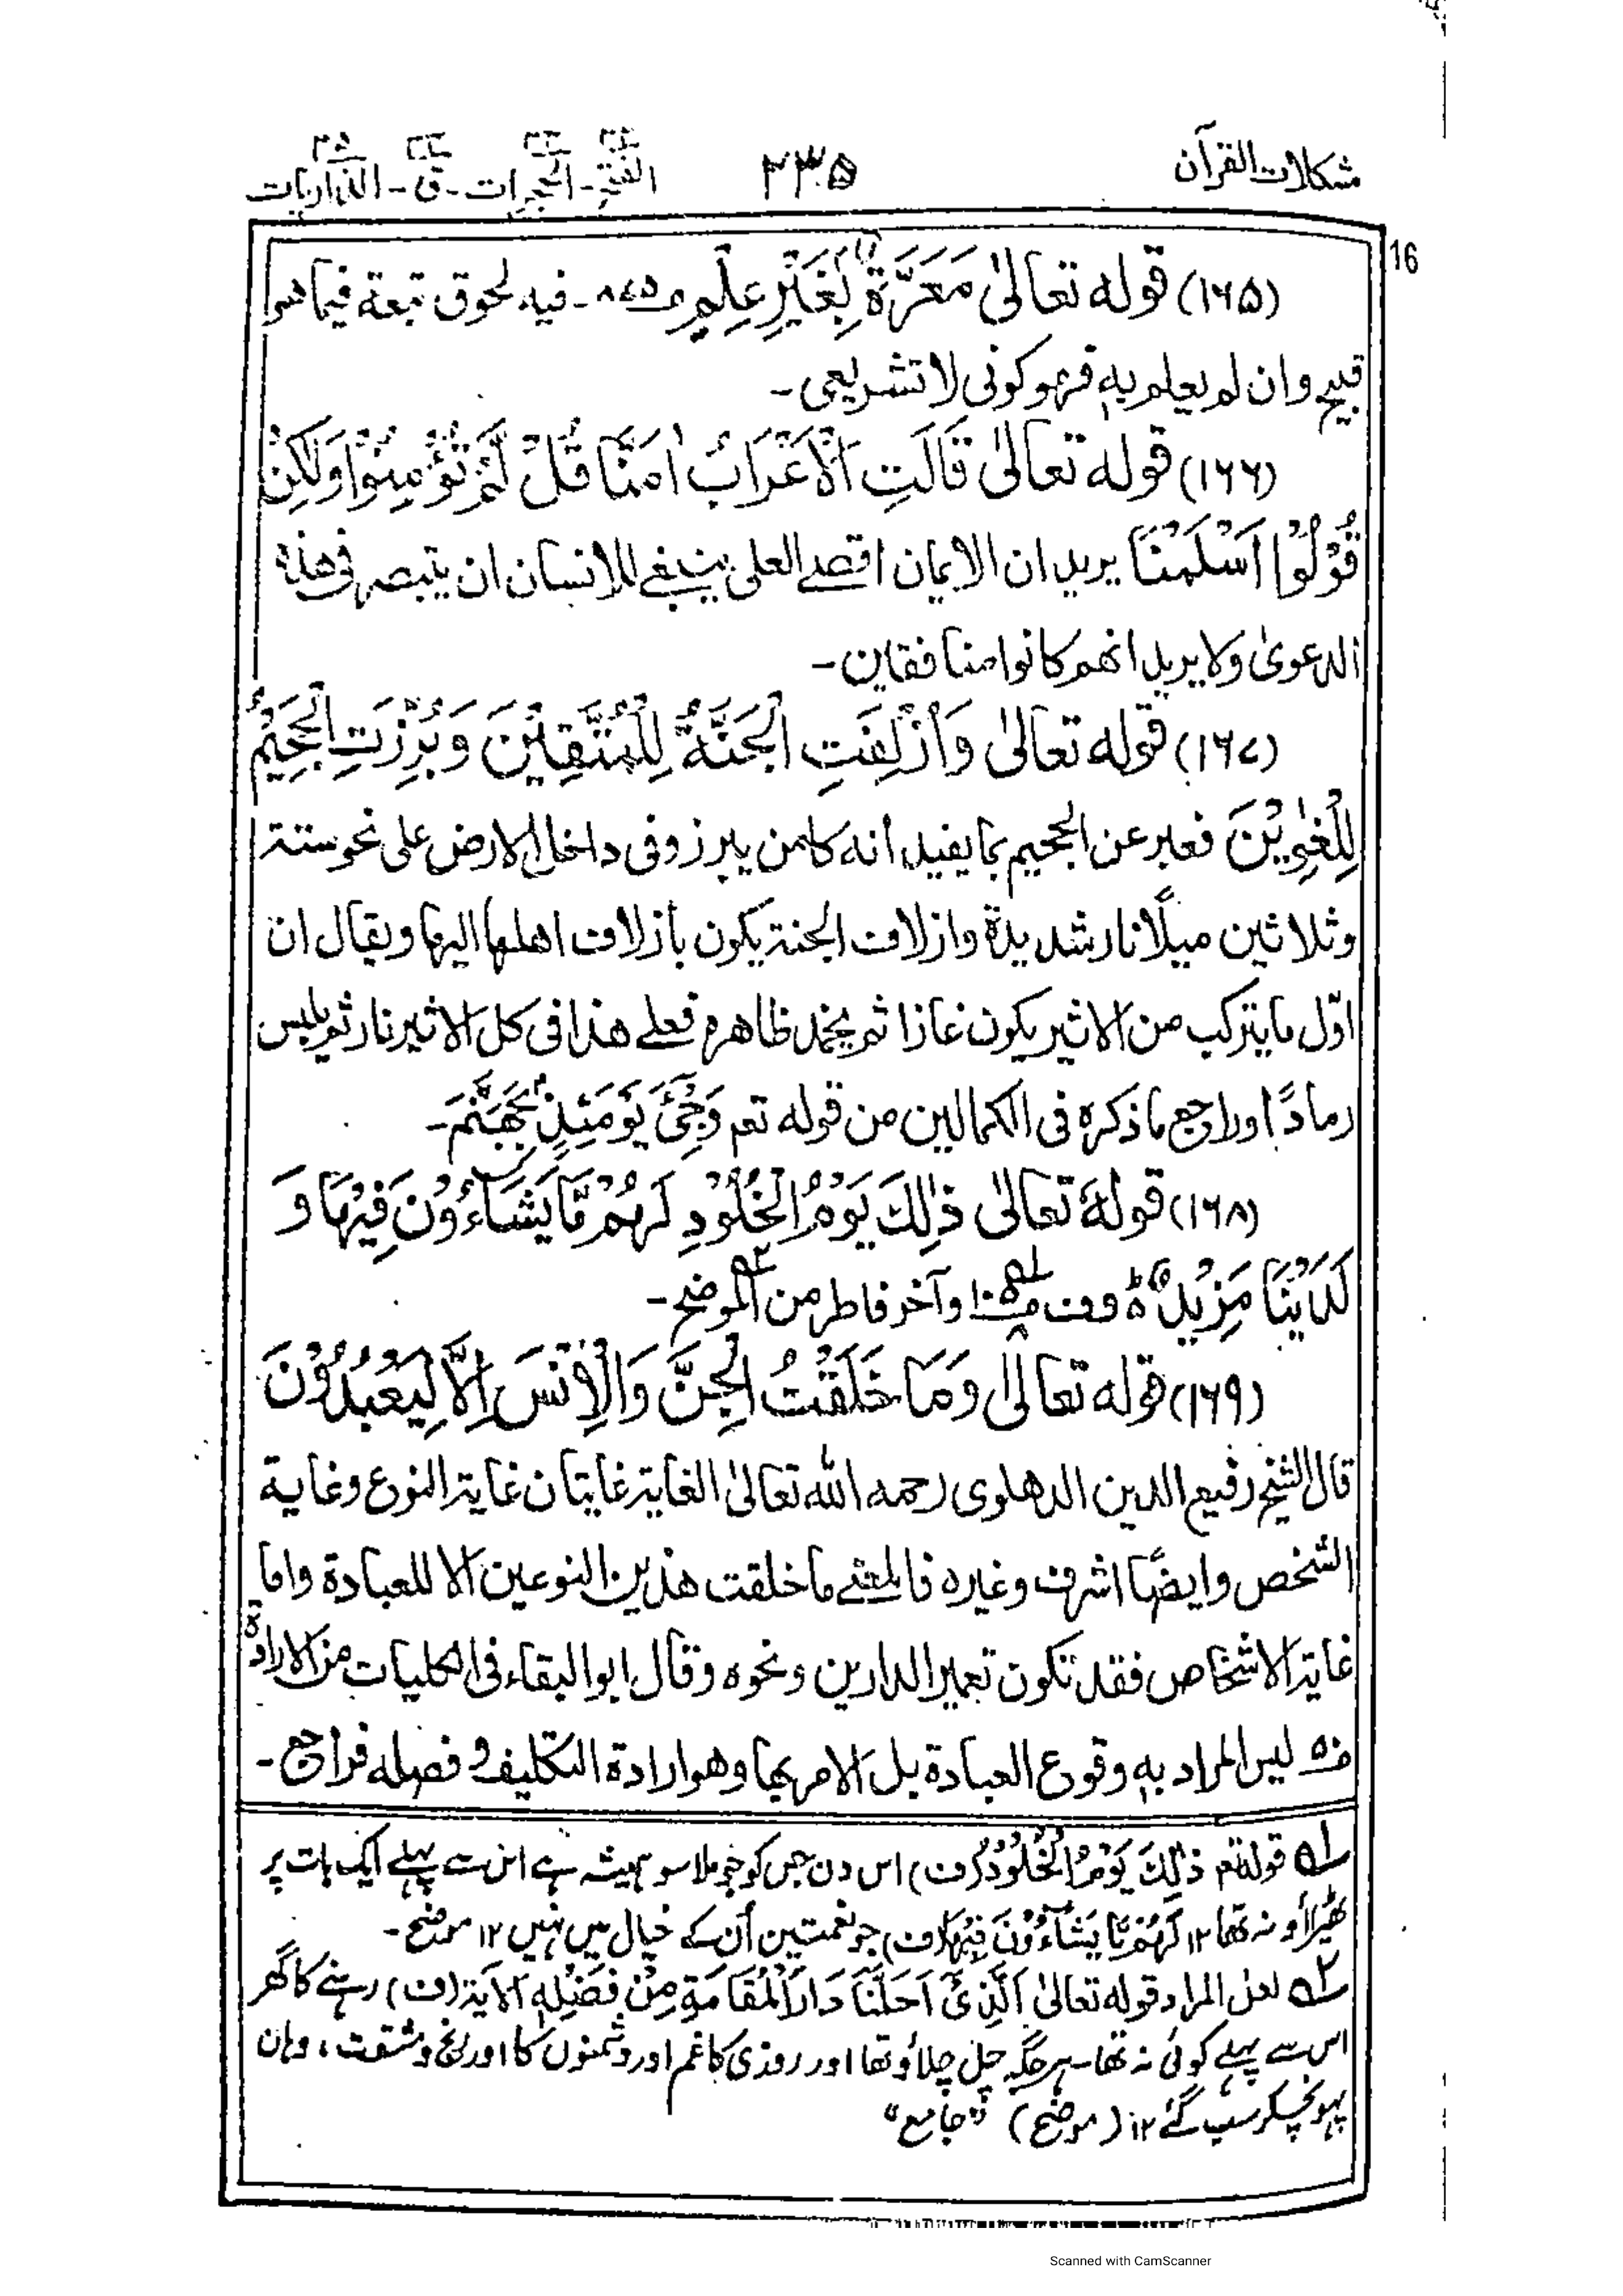 مشکلات القرآن
۲۳۵
الفتح - الحجرات - ق - الذاریات
16
(۱۶۵) قوله تعالیٰ مَعَرَّةٌۢ بِغَيْرِ عِلْمٍ - فیه لحوق تبعة فیما هوا
قبیح وان لم یعلم به فهو کونی لا تشریعی -
(۱۶۶) قوله تعالیٰ قَالَتِ الْاَعْرَابُ اٰمَنَّا قُلْ لَّمْ تُؤْمِنُوْا وَلٰكِنْ
قُوْلُوْٓا اَسْلَمْنَا یرید ان الایمان اقصے العلی ینبغے للانسان ان یتبصر فی هذه
الدعویٰ ولا یرید انهم کانوا منافقین -
(۱۶۷) قوله تعالیٰ وَاُزْلِفَتِ الْجَنَّةُ لِلْمُتَّقِيْنَ وَبُرِّزَتِ الْجَحِيْمُ
لِلْغٰوِيْنَ فعبر عن الجحیم بما یفید انه کامن یبرز وفی داخل الارض علی نحو ستة
وثلاثین میلًا نار شدیدة وازلاف الجنة یکون بازلاف اهلها الیها ویقال ان
اوّل ما یترکب من الاثیر یکون غازا ثم یخمد ظاهره فعلے هذا فی کل الاثیر نار ثم یلبس
رمادًا وراجع ما ذکره فی الکمالین من قوله تعم وَجِیْٓءَ يَوْمَئِذٍۢ بِجَهَنَّمَ -
(۱۶۸) قوله تعالیٰ ذٰلِكَ يَوْمُ الْخُلُوْدِ لَهُمْ مَّا يَشَآءُوْنَ فِيْهَا وَ
لَدَيْنَا مَزِيْدٌ ه وف وآخر فاطر من الموضح -
(۱۶۹) قوله تعالیٰ وَمَا خَلَقْتُ الْجِنَّ وَالْاِنْسَ اِلَّا لِيَعْبُدُوْنَ
قال الشیخ رفیع الدین الدهلوی رحمه الله تعالیٰ الغایة غایتان غایة النوع وغایة
الشخص وایضًا اشرف وغیره فالمعنے ما خلقت هذین النوعین الا للعبادة واما
غایة الاشخاص فقد تکون تعمیر الدارین ونحوه وقال ابو البقاء فی الکلیات من الارادة
لیس المراد به وقوع العبادة بل الامر بها وهو ارادة التکلیف و فصله فراجع -
۱؎ قوله تعم ذٰلِكَ يَوْمُ الْخُلُوْدُ (ف) اس دن جس کو جو ملا سو ہمیشہ ہے اس سے پہلے ایک بات پر
ٹھیراؤ نہ تھا ۱۲ لَهُمْ مَّا يَشَآءُوْنَ فِيْهَا (ف) جو نعمتین اُن کے خیال میں نہیں ۱۲ موضح -
۲؎ لعل المراد قوله تعالیٰ اَلَّذِیْٓ اَحَلَّنَا دَارَ الْمُقَامَةِ مِنْ فَضْلِهٖ الاٰیة (ف) رہنے کا گھر
اس سے پہلے کوئی نہ تھا - ہر جگہ چل چلاؤ تھا اور روزی کا غم اور دشمنوں کا اور رنج و مشقت ، وہان
پہونچکر سب گئے ۱۲ (موضح) ”جامع“
Scanned with CamScanner